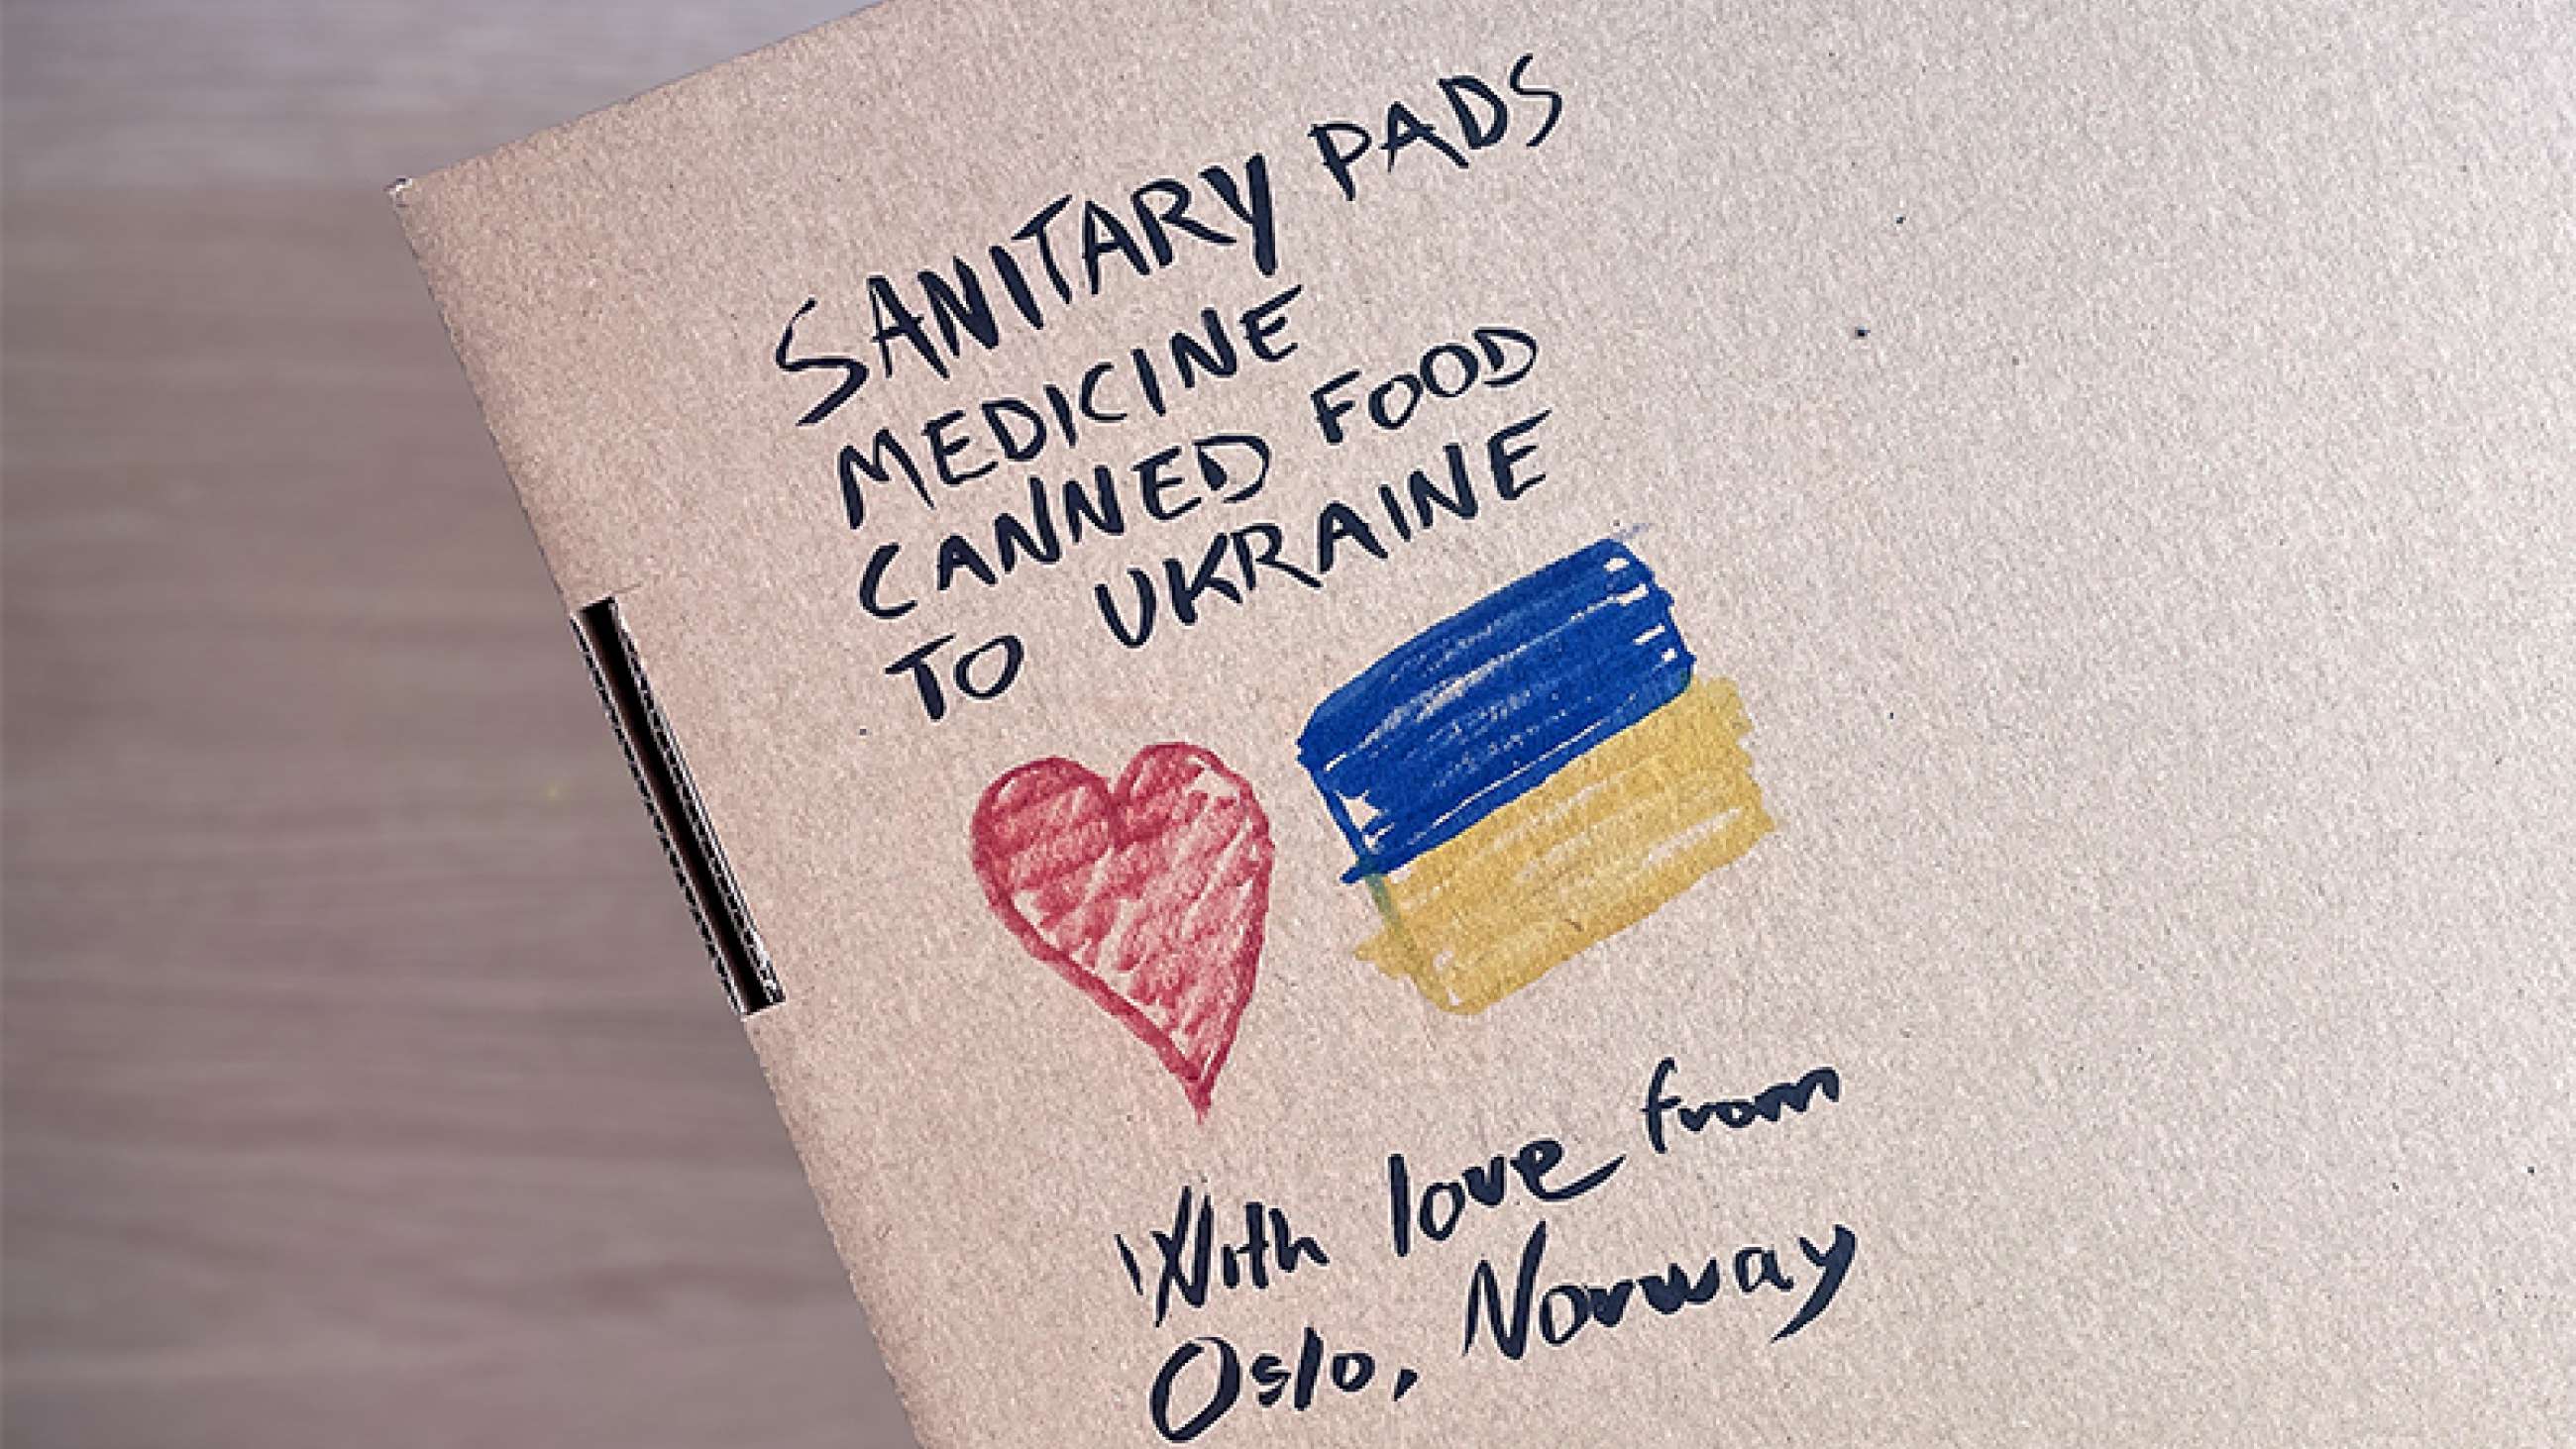 SANITARY PADS
MEDICINE
CANNED FOOD
TO UKRAINE
With love from
Oslo, Norway